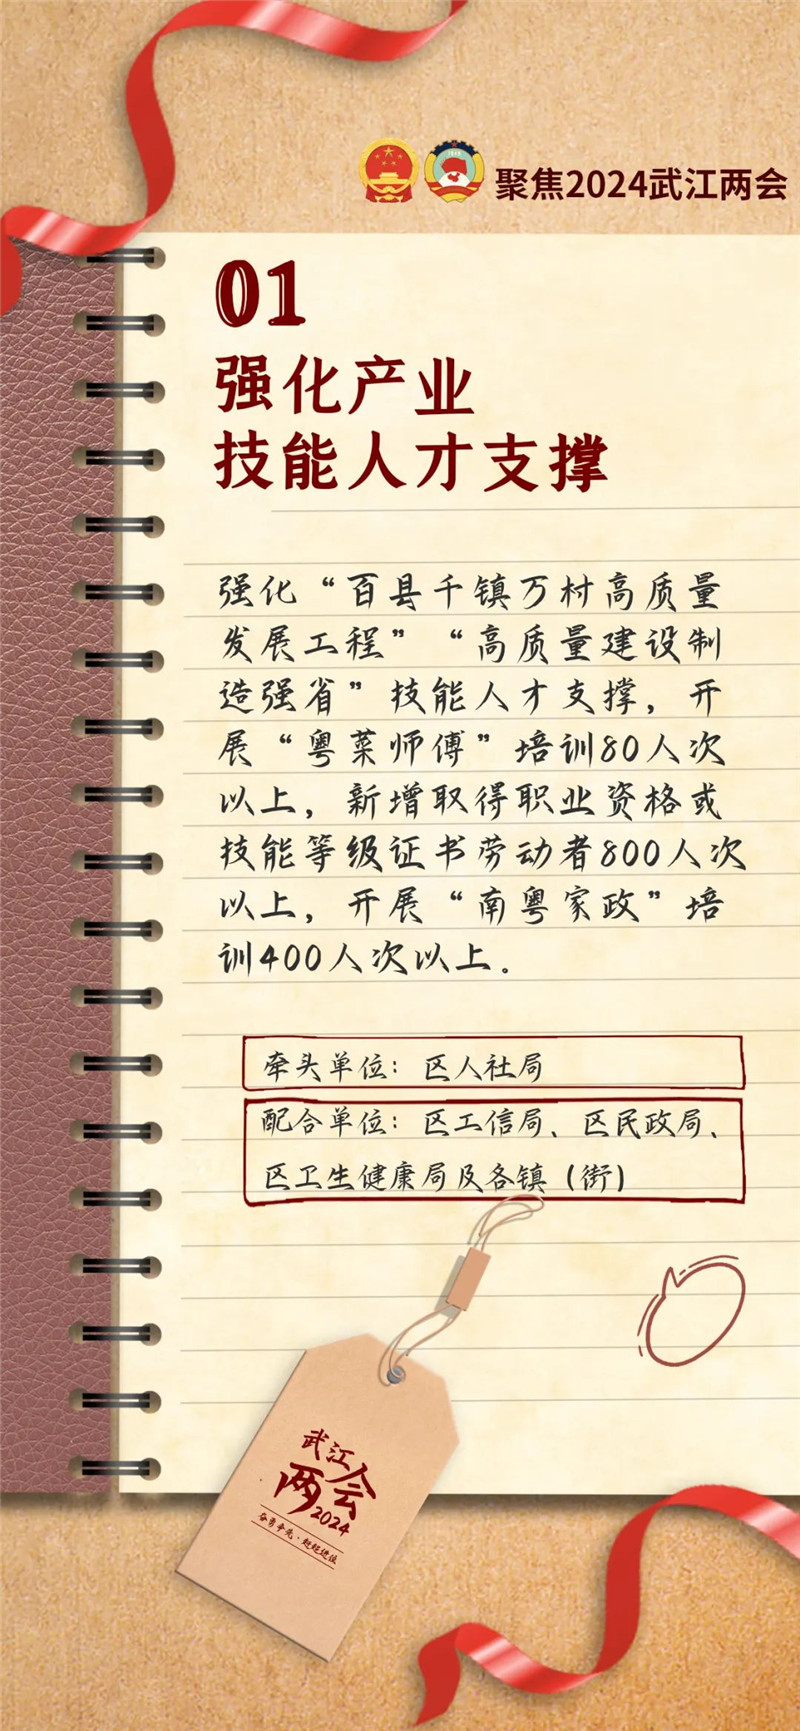 聚焦2024武江两会
01
强化产业
技能人才支撑
强化“百县千镇万村高质量
发展工程”“高质量建设制
造强省”技能人才支撑，开
展“粤菜师傅”培训80人次
以上，新增取得职业资格或
技能等级证书劳动者800人次
以上，开展“南粤家政”培
训400人次以上。
牵头单位：区人社局
配合单位：区工信局、区民政局、
区卫生健康局及各镇（街）
武江
两会
2024
奋勇争先·赶超进位